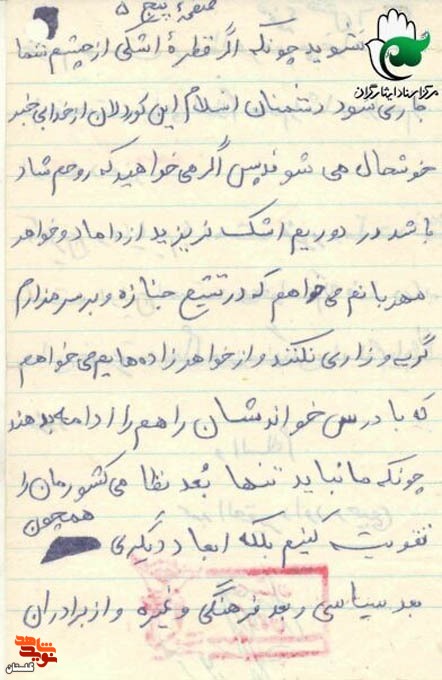 صفحهٔ پنج ۵
مرکز اسناد ایثارگران
نشوید چونکه اگر قطرهٔ اشکی از چشم شما
جاری شود دشمنان اسلام این کوردلان از خدا بی خبر
خوشحال می شوند پس اگر می خواهید که روحم شاد
باشد در دوریم اشک نریزید از داماد و خواهر
مهربانم می خواهم که در تشیع جنازه و بر سر مزارم
گریه و زاری نکنند و از خواهر زاده هایم می خواهم
که با درس خواندنشان راهم را ادامه بدهند
چونکه ما نباید تنها بُعد نظامی کشورمان را
تقویت کنیم بلکه ابعاد دیگری همچون
بعد سیاسی و بعد فرهنگی و غیره و از برادران
نوید شاهد
گلستان